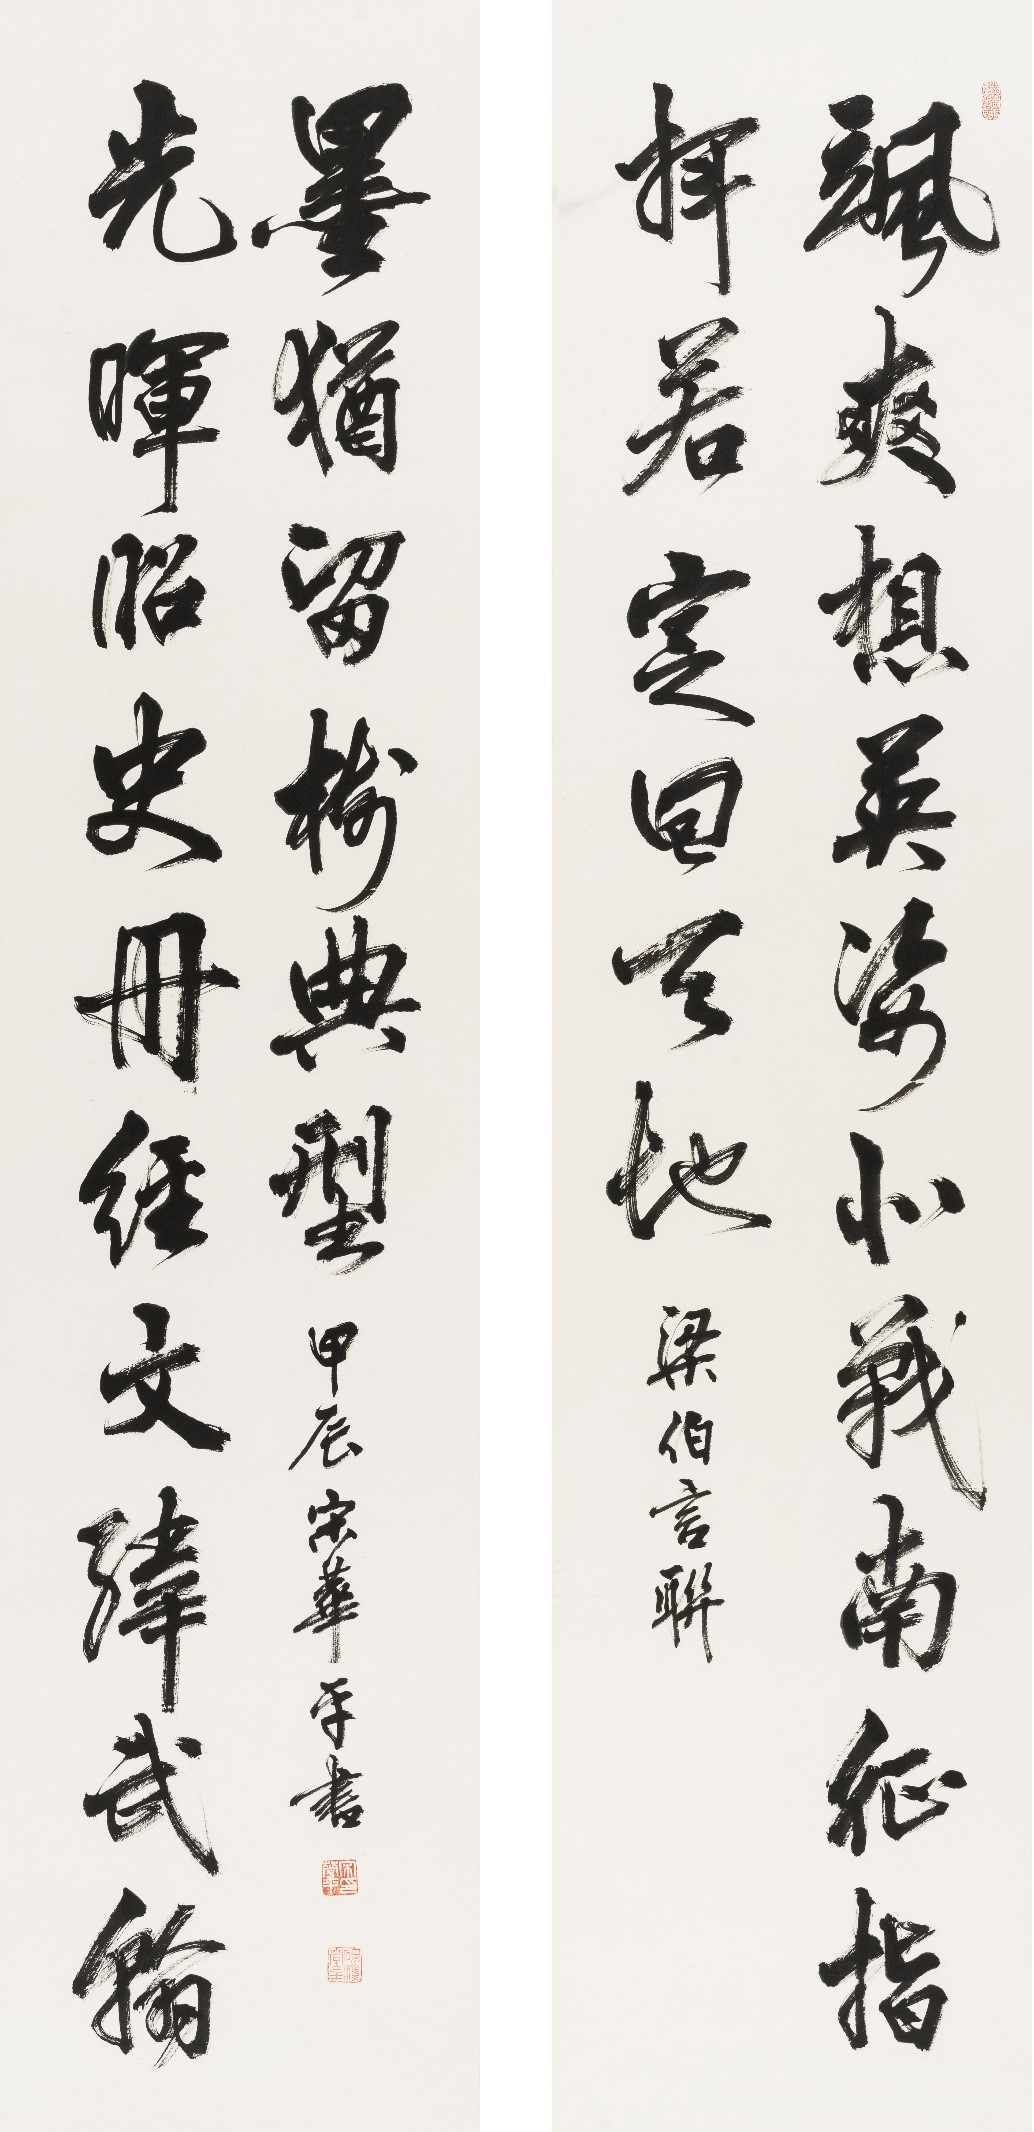 颯爽想英姿北戰南征指
揮若定回天地
梁伯言聯
先暉昭史冊經文緯武翰
墨猶留樹典型
甲辰宋華平書